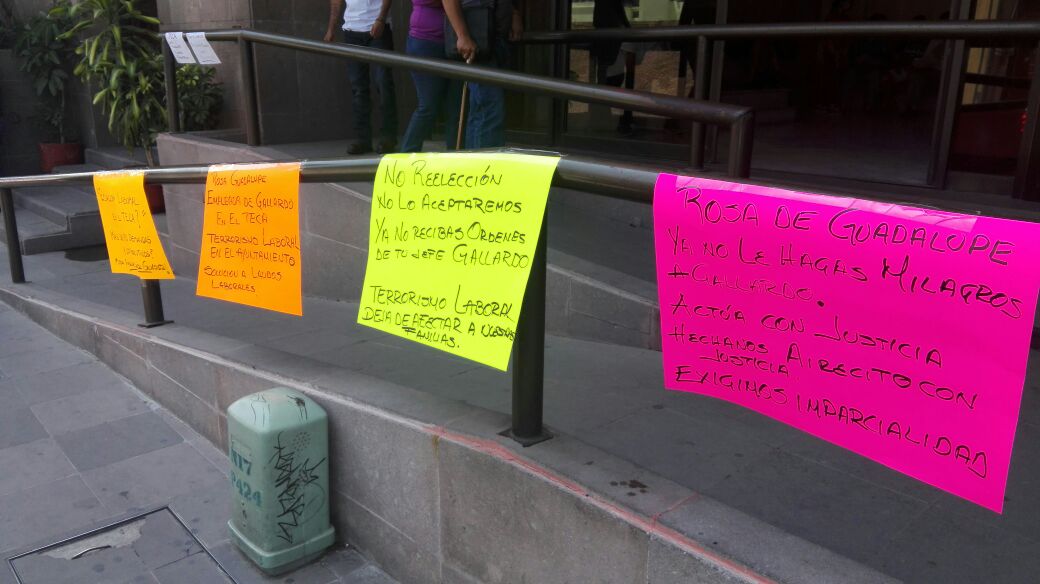 LABORAL
ROSA GUADALUPE
EMPLEADA DE GALLARDO
EN EL TECA
TERRORISMO LABORAL
EN EL AYUNTAMIENTO
SOLUCION A LAUDOS
LABORALES
NO REELECCIÓN
NO LO ACEPTAREMOS
YA NO RECIBAS ORDENES
DE TU JEFE GALLARDO
TERRORISMO LABORAL
DEJA DE AFECTAR A NUESTRAS
FAMILIAS.
ROSA DE GUADALUPE
YA NO LE HAGAS MILAGROS
#GALLARDO.
ACTÚA CON JUSTICIA
HECHANOS AIRECITO CON
JUSTICIA
EXIGIMOS IMPARCIALIDAD
417
P424